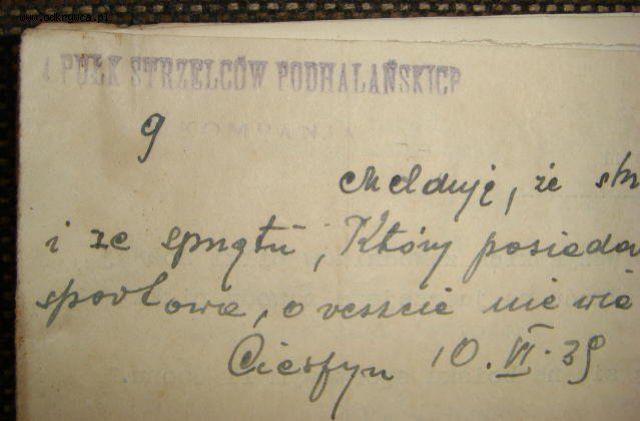 www.odkrywca.pl
4 PUŁK STRZELCÓW PODHALAŃSKICH
9 KOMPANJA
Melduję, że
i ze sprzętu, Który posiada
sportowe, o reszcie nie wie
Cieszyn 10. VI. 39